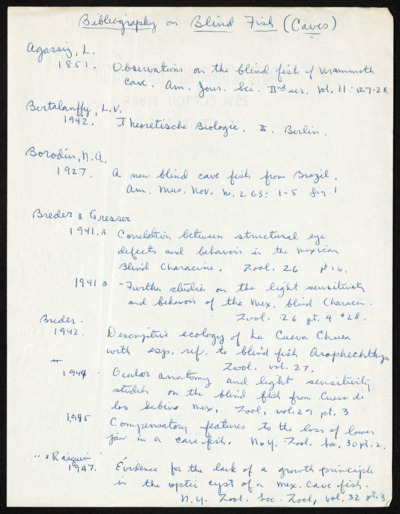 Bibliography on Blind Fish (Caves)
Agassiz, L.
1851. Observations on the blind fish of Mammoth
cave. Am. Jour. Sci. IInd ser. Vol. 11: 127-28
Bertalanffy, L.V.
1942. Theoretische Biologie. II. Berlin.
Borodin, N.A.
1927. A new blind cave fish from Brazil.
Am. Mus. Nov. no. 263: 1-5 fig 1
Breder & Gresser
1941.A Correlation between structural eye
defects and behavior in the Mexican
Blind Characine. Zool. 26 #16.
1941 B - Further studies on the light sensitivity
and behavior of the Mex. blind Characin.
Zool. 26 pt. 4 #28.
Breder
1942. Descriptive ecology of La Cueva Chica
with esp. ref. to blind fish
Zool. vol. 27.
" 1944 Ocular anatomy and light sensitivity
studies on the blind fish from Cueva de
los Sabinos Mex. Zool, vol. 29 pt. 3
1945 Compensatory features to the loss of lower
jaw in a cave fish. N.Y. Zool. Soc. 30 pt. 2.
" & Rasquin
1947. Evidence for the lack of a growth principle
in the optic cyst of a Mex. Cave fish.
N.Y. Zool. Soc. Zool, vol. 32 pt. 3